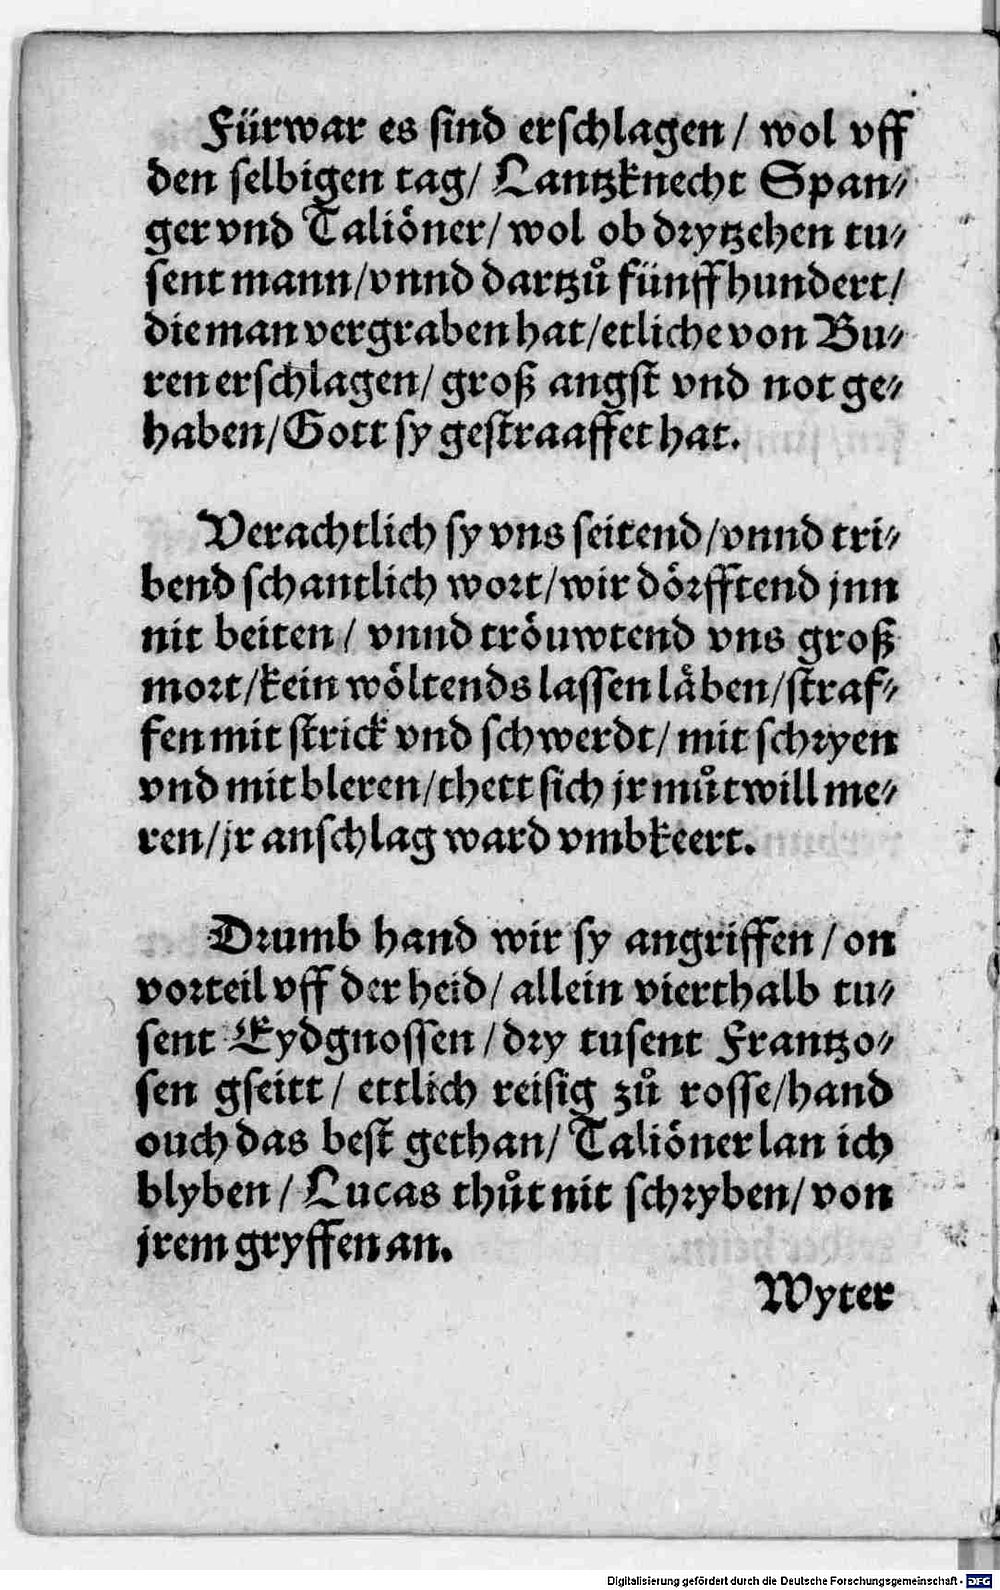 Fürwar es sind erschlagen / wol vff
den selbigen tag/ Lantzknecht Span⸗
ger vnd Taliöner/ wol ob drytzehen tu⸗
sent mann/vnnd dartzů fünff hundert/
die man vergraben hat/etliche von Bu⸗
ren erschlagen/ groß angst vnd not ge⸗
haben/Gott sy gestraaffet hat.
Verachtlich sy vns seitend/vnnd tri⸗
bend schantlich wort/wir dörfftend jnn
nit beiten / vnnd tröuwtend vns groß
mort/kein wöltends lassen läben/straf⸗
fen mit strick vnd schwerdt/ mit schryen
vnd mit bleren/thett sich jr můtwill me⸗
ren/jr anschlag ward vmbkeert.
Drumb hand wir sy angriffen / on
vorteil vff der heid/ allein vierthalb tu⸗
sent Eydgnossen / dry tusent Frantzo⸗
sen gseitt/ ettlich reisig zů rosse/hand
ouch das best gethan/ Taliöner lan ich
blyben / Lucas thůt nit schryben/ von
jrem gryffen an.
Wyter
Digitalisierung gefördert durch die Deutsche Forschungsgemeinschaft - DFG